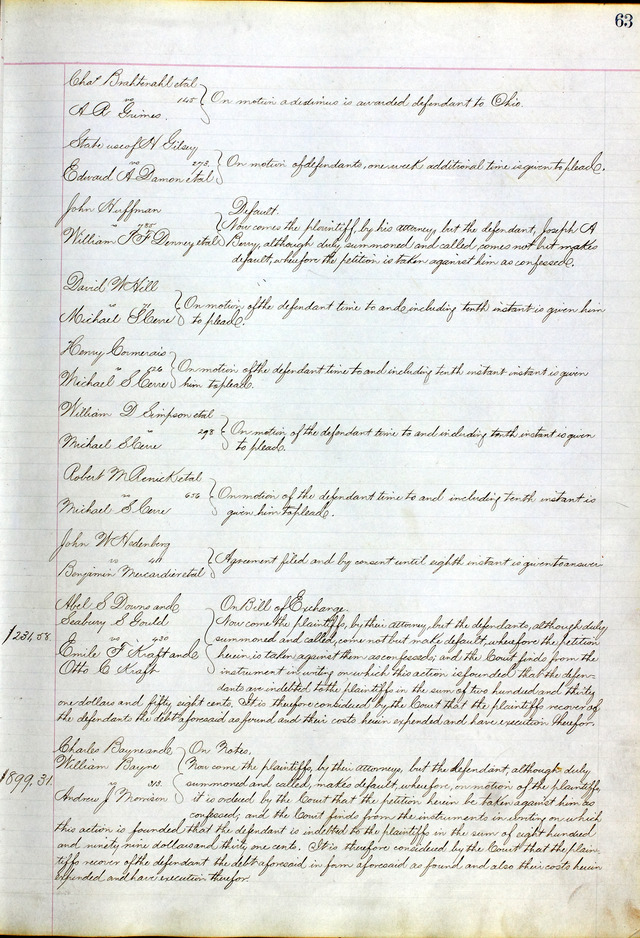 63
Chas Brahtenahl et al
vs 145 On motion a dedimus is awarded defendant to Ohio.
A R Grimes.
State use of H Gilsey
vs 273. On motion of defendants, one week additional time is given to plead.
Edward A Damon et al
John Huffman Default.
vs 785 Now comes the plaintiff, by his attorney, but the defendant, Joseph A
William F F Denney et als Berry, although duly summoned and called, comes not but makes
default, wherefore the petition is taken against him as confessed.
David W Hill
vs On motion of the defendant time to and including tenth instant is given him
Michael S Cerre to plead.
Henry Cormerais
vs 626 On motion of the defendant time to and including tenth instant instant is given
Michael S Cerre him to plead.
William D Simpson et al
vs 298 On motion of the defendant time to and including tenth instant is given
Michael S Cerre to plead.
Robert M Renick et al
vs 656 On motion of the defendant time to and including tenth instant is
Michael S Cerre given him to plead.
John W Hedenberg
vs 411 Agreement filed and by consent until eighth instant is given to answer
Benjamin Mercardier et al
Abel S Downs and On Bill of Exchange.
Seabury S Gould Now come the plaintiffs, by their attorney, but the defendants, although duly
$231,58. vs 430 summoned and called, come not but make default, wherefore the petition
Emile F Kraft and herein is taken against them as confessed; and the Court finds from the
Otto C Kraft instrument in writing on which this action is founded that the defen-
dants are indebted to the plaintiffs in the sum of two hundred and thirty
one dollars and fifty eight cents. It is therefore considered by the Court that the plaintiffs recover of
the defendants the debt aforesaid as found and their costs herein expended and have execution therefor.
Charles Bayne and On Notes.
William Bayne Now come the plaintiffs, by their attorneys, but the defendant, although duly
$899,31. vs 313. summoned and called, makes default, wherefore, on motion of the plaintiffs,
Andrew J Morrison it is ordered by the Court that the petition herein be taken against him as
confessed; and the Court finds from the instruments in writing on which
this action is founded that the defendant is indebted to the plaintiffs in the sum of eight hundred
and ninety nine dollars and thirty one cents. It is therefore considered by the Court that the plain-
tiffs recover of the defendant the debt aforesaid in form aforesaid as found and also their costs herein
expended and have execution therefor.